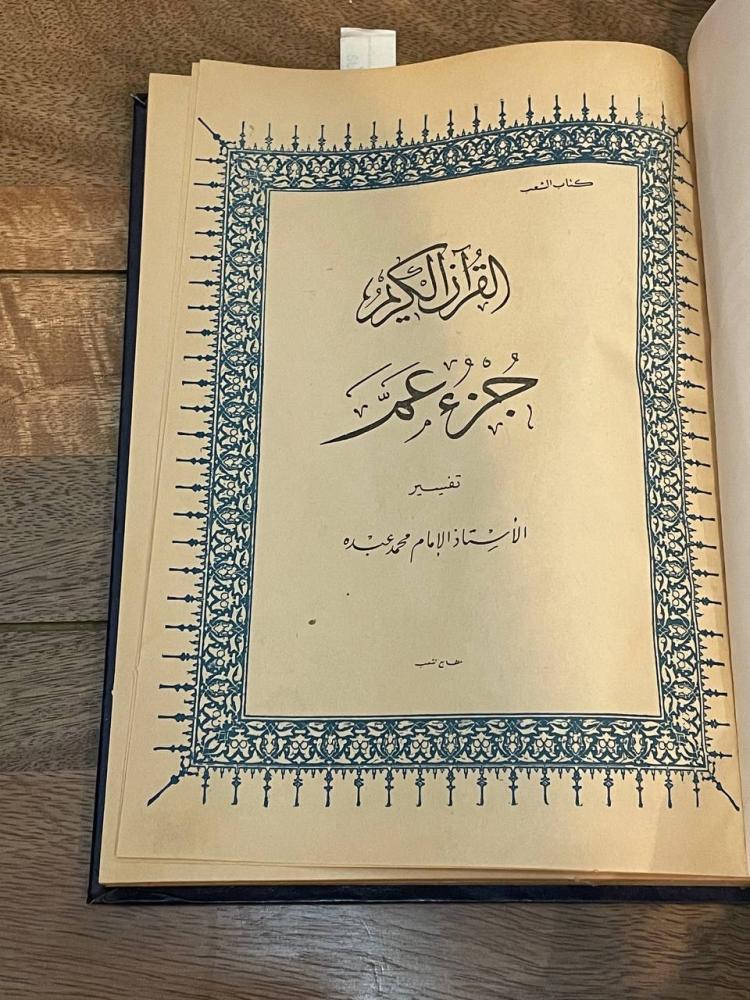 كتاب الشعب
القرآن الكريم
جُزْءُ عَمَّ
تفسير
الأستاذ الإمام محمد عبده
مطابع الشعب